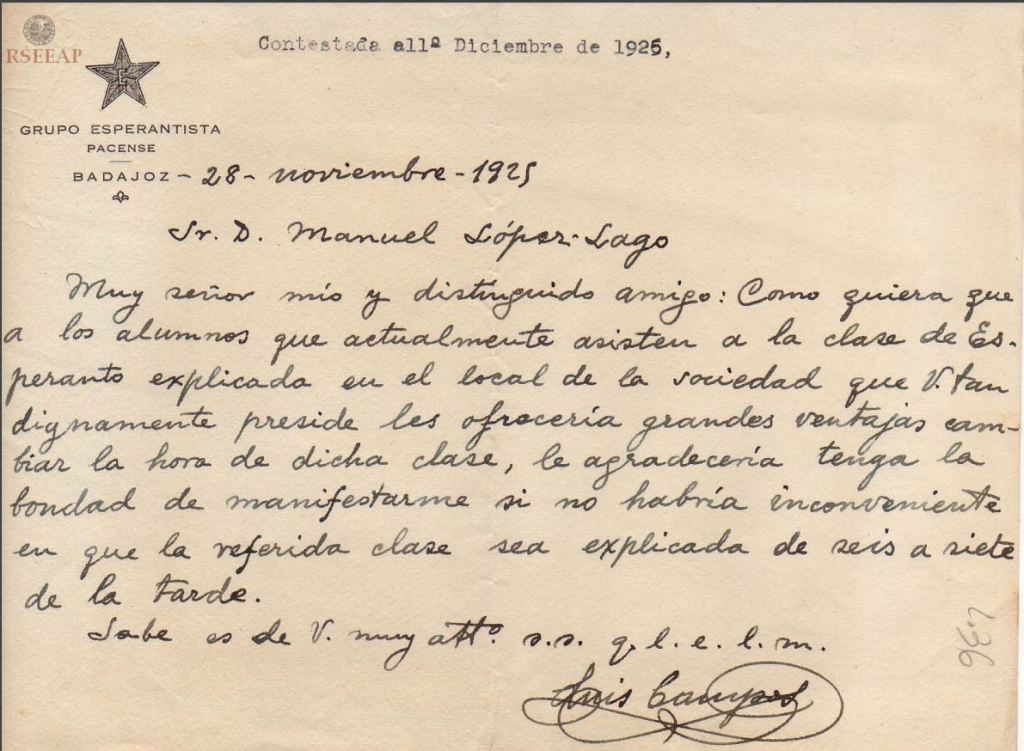 RSEEAP
Contestada al 1º Diciembre de 1925,
E
GRUPO ESPERANTISTA
PACENSE
BADAJOZ - 28 - noviembre - 1925
Sr. D. Manuel López-Lago
Muy señor mío y distinguido amigo: Como quiera que
a los alumnos que actualmente asisten a la clase de Es-
peranto explicada en el local de la sociedad que V. tan
dignamente preside les ofrecería grandes ventajas cam-
biar la hora de dicha clase, le agradecería tenga la
bondad de manifestarme si no habría inconveniente
en que la referida clase sea explicada de seis a siete
de la tarde.
Sabe es de V. muy attº. s.s. q. l. e. l. m.
Luis Campos